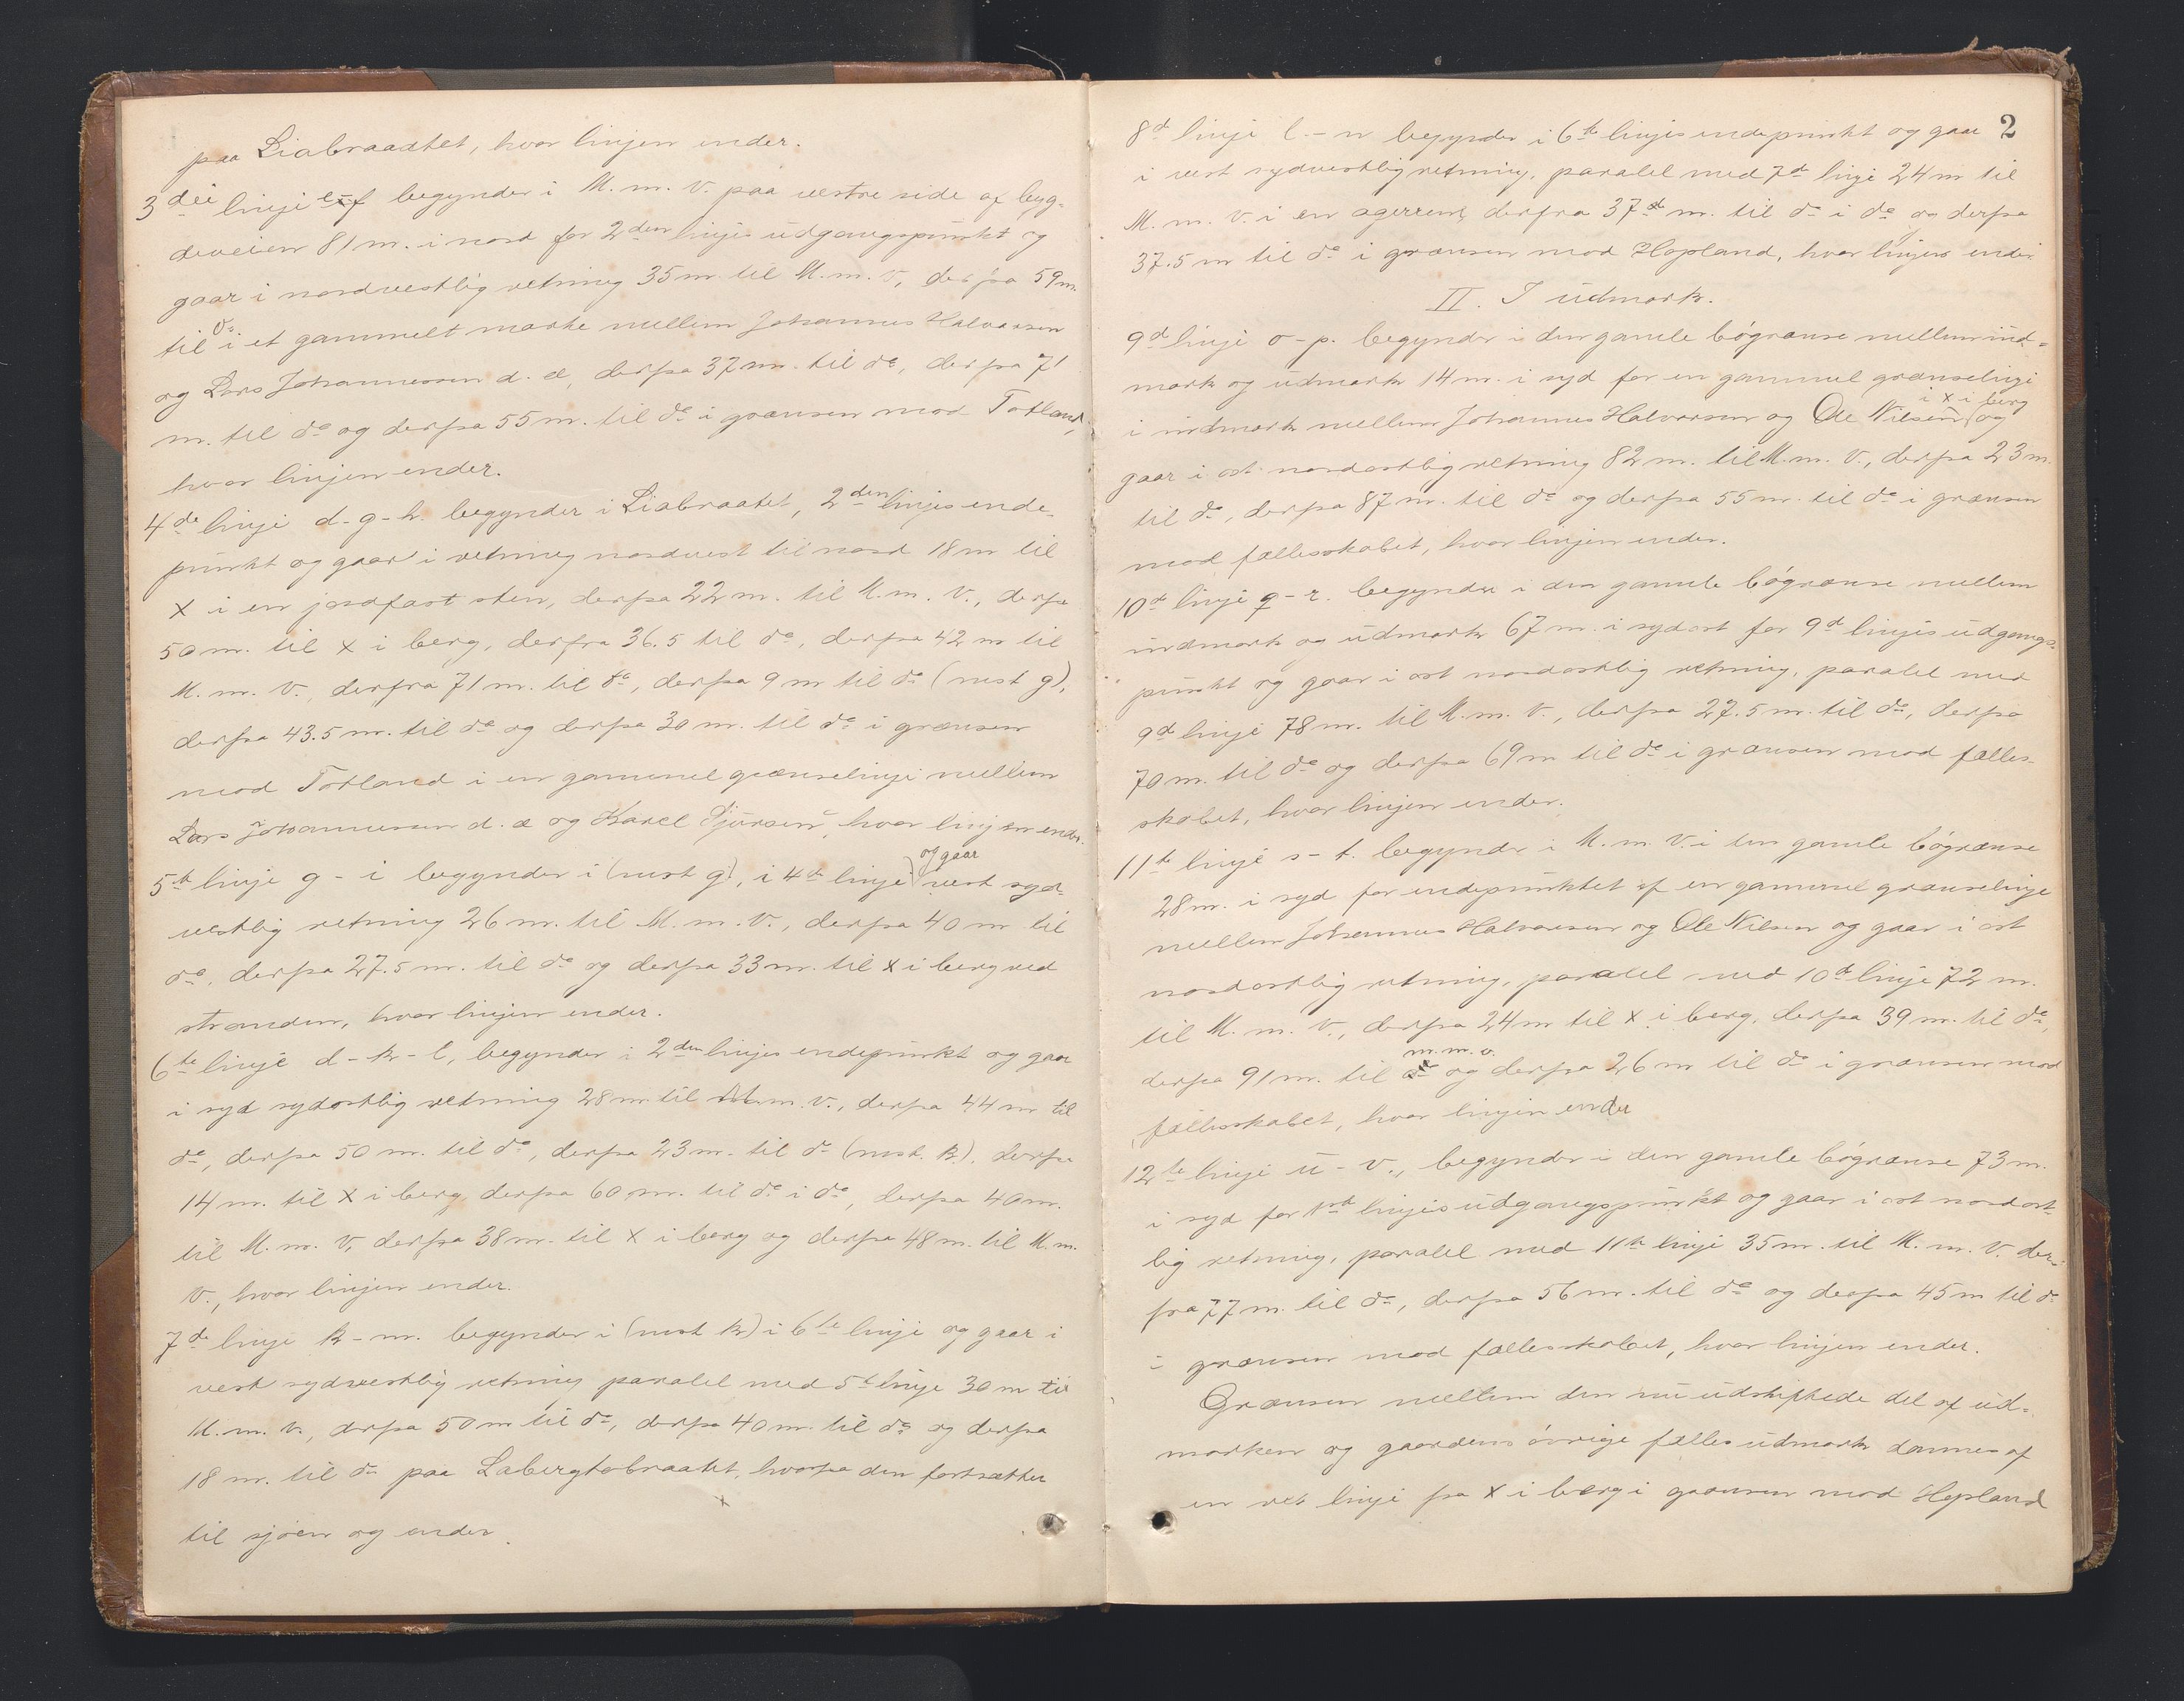 paa Liabraatet, hvor linjen ender.
3die linje e-f begynder i M. m. V. paa vestre side af byg-
deveien 81 m. i nord for 2den linjes udgangspunkt og
gaar i nordvestlig retning 35 m. til M. m. V., derfra 59 m.
til do i et gammelt marke mellem Johannes Halvorsen
og Lars Johannessen d. æ, derfra 37 m. til do, derfra 71
m. til do og derfra 55 m. til do i grænsen mod Totland,
hvor linjen ender.
4de linje d-g-h. begynder i Liabraatet, 2den linjes ende-
punkt og gaar i retning nordvest til nord 18 m til
x i en jordfast sten, derfra 22 m. til M. m. V., derfra
50 m. til x i berg, derfra 36.5 til do, derfra 42 m til
M. m. V. derfra 71 m. til do, derfra 9 m til do (mrst g),
derfra 43.5 m. til do og derfra 30 m. til do i grænsen
mod Totland i en gammel grænselinje mellem
Lars Johannessen d. æ og Karel Sjursen, hvor linjen ender.
5te linje g - i begynder i (mrst g), i 4de linje og gaar vest syd-
vestlig retning 26 m. til M. m. V., derfra 40 m til
do, derfra 27.5 m. til do og derfra 33 m. til x i berg ved
stranden, hvor linjen ender.
6te linje d-k-l, begynder i 2den linjes endepunkt og gaar
i syd sydostlig retning 28 m til M. m. v., derfra 44 m til
do, derfra 50 m. til do, derfra 23 m. til do (mrst. k). derfra
14 m. til x i berg derfra 60 m. til do i do, derfra 40 m.
til M. m. V, derfra 38 m. til x i berg og derfra 48 m. til M. m.
V., hvor linjen ender.
7de linje k-m. begynder i (mrst k) i 6te linje og gaar i
vest sydvestlig retning paralel med 5te linje 30 m til
M. m. v., derfra 50 m til do, derfra 40 m. til do og derfra
18 m. til do paa Labergtobraatet, hvorfra den fortsætter
til sjøen og ender.
2
8de linje l-n begynder i 6te linjes endepunkt og gaar
i vest sydvestlig retning, paralel med 7de linje 24 m til
M. m. V. i en agerrend, derfra 37 m. til do i do og derfra
37.5 m til do i grænsen mod Hopland, hvor linjen ender
II. I udmark.
9de linje o-p. begynder i den gamle bøgrænse mellem ind-
mark og udmark 14 m. i syd for en gammel grænselinje
i indmark mellem Johannes Halvorsen og Ole Nilsen i x i berg og
gaar i ost nordostlig retning 82 m. til M. m. V., derfra 23 m.
til do, derfra 87 m. til do og derfra 55 m. til do i grænsen
mod fællesskabet, hvor linjen ender.
10de linje q-r. begynder i den gamle bøgrænse mellem
indmark og udmark 67 m. i sydost for 9de linjes udgangs-
punkt og gaar i ost nordostlig retning, paralel med
9de linje 78 m. til M. m. V., derfra 27.5 m. til do, derfra
70 m. til do og derfra 69 m til do i grænsen mod fælles-
skabet, hvor linjen ender.
11te linje s-t. begynder i M. m. V. i den gamle bøgrænse
28 m. i syd for endepunktet af en gammel grænselinje
mellem Johannes Halvorsen og Ole Nilsen og gaar i ost
nordostlig retning, paralel med 10de linje 72 m.
til M. m. V., derfra 24 m til x i berg, derfra 39 m. til do,
derfra 91 m. til m. m. v. og derfra 26 m til do i grænsen mod
fællesskabet, hvor linjen ender
12te linje u-v., begynder i den gamle bøgrænse 73 m.
i syd for 11te linjes udgangspunkt og gaar i ost nordost-
lig retning, paralel med 11te linje 35 m. til M. m. V. der-
fra 77 m. til do, derfra 56 m. til do og derfra 45 m til do
i grænsen mod fællesskabet, hvor linjen ender.
Grænsen mellem den nu udskiftede del af ud-
marken og gaardens øvrige fælles udmark dannes af
en ret linje fra x i berg i grænsen mod Hopland